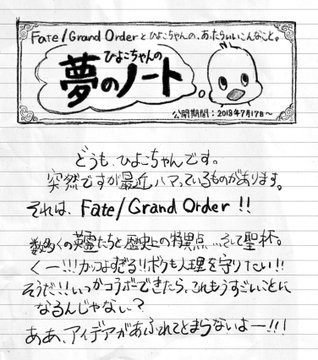 Fate/Grand Orderとひよこちゃんの、あったらいいこんなこと。
ひよこちゃんの
夢のノート
公開期間：2018年7月17日〜
どうも、ひよこちゃんです。
突然ですが最近ハマっているものがあります。
それは、Fate/Grand Order!!
数多くの英霊たちと歴史上の特異点...そして聖杯。
くー!!!カッコよすぎる!!ボクも人理を守りたい!!
そうだ!!いつかコラボできたら、これもうすごいことに
なるんじゃない?
ああ、アイデアがあふれてとまらないよー!!!